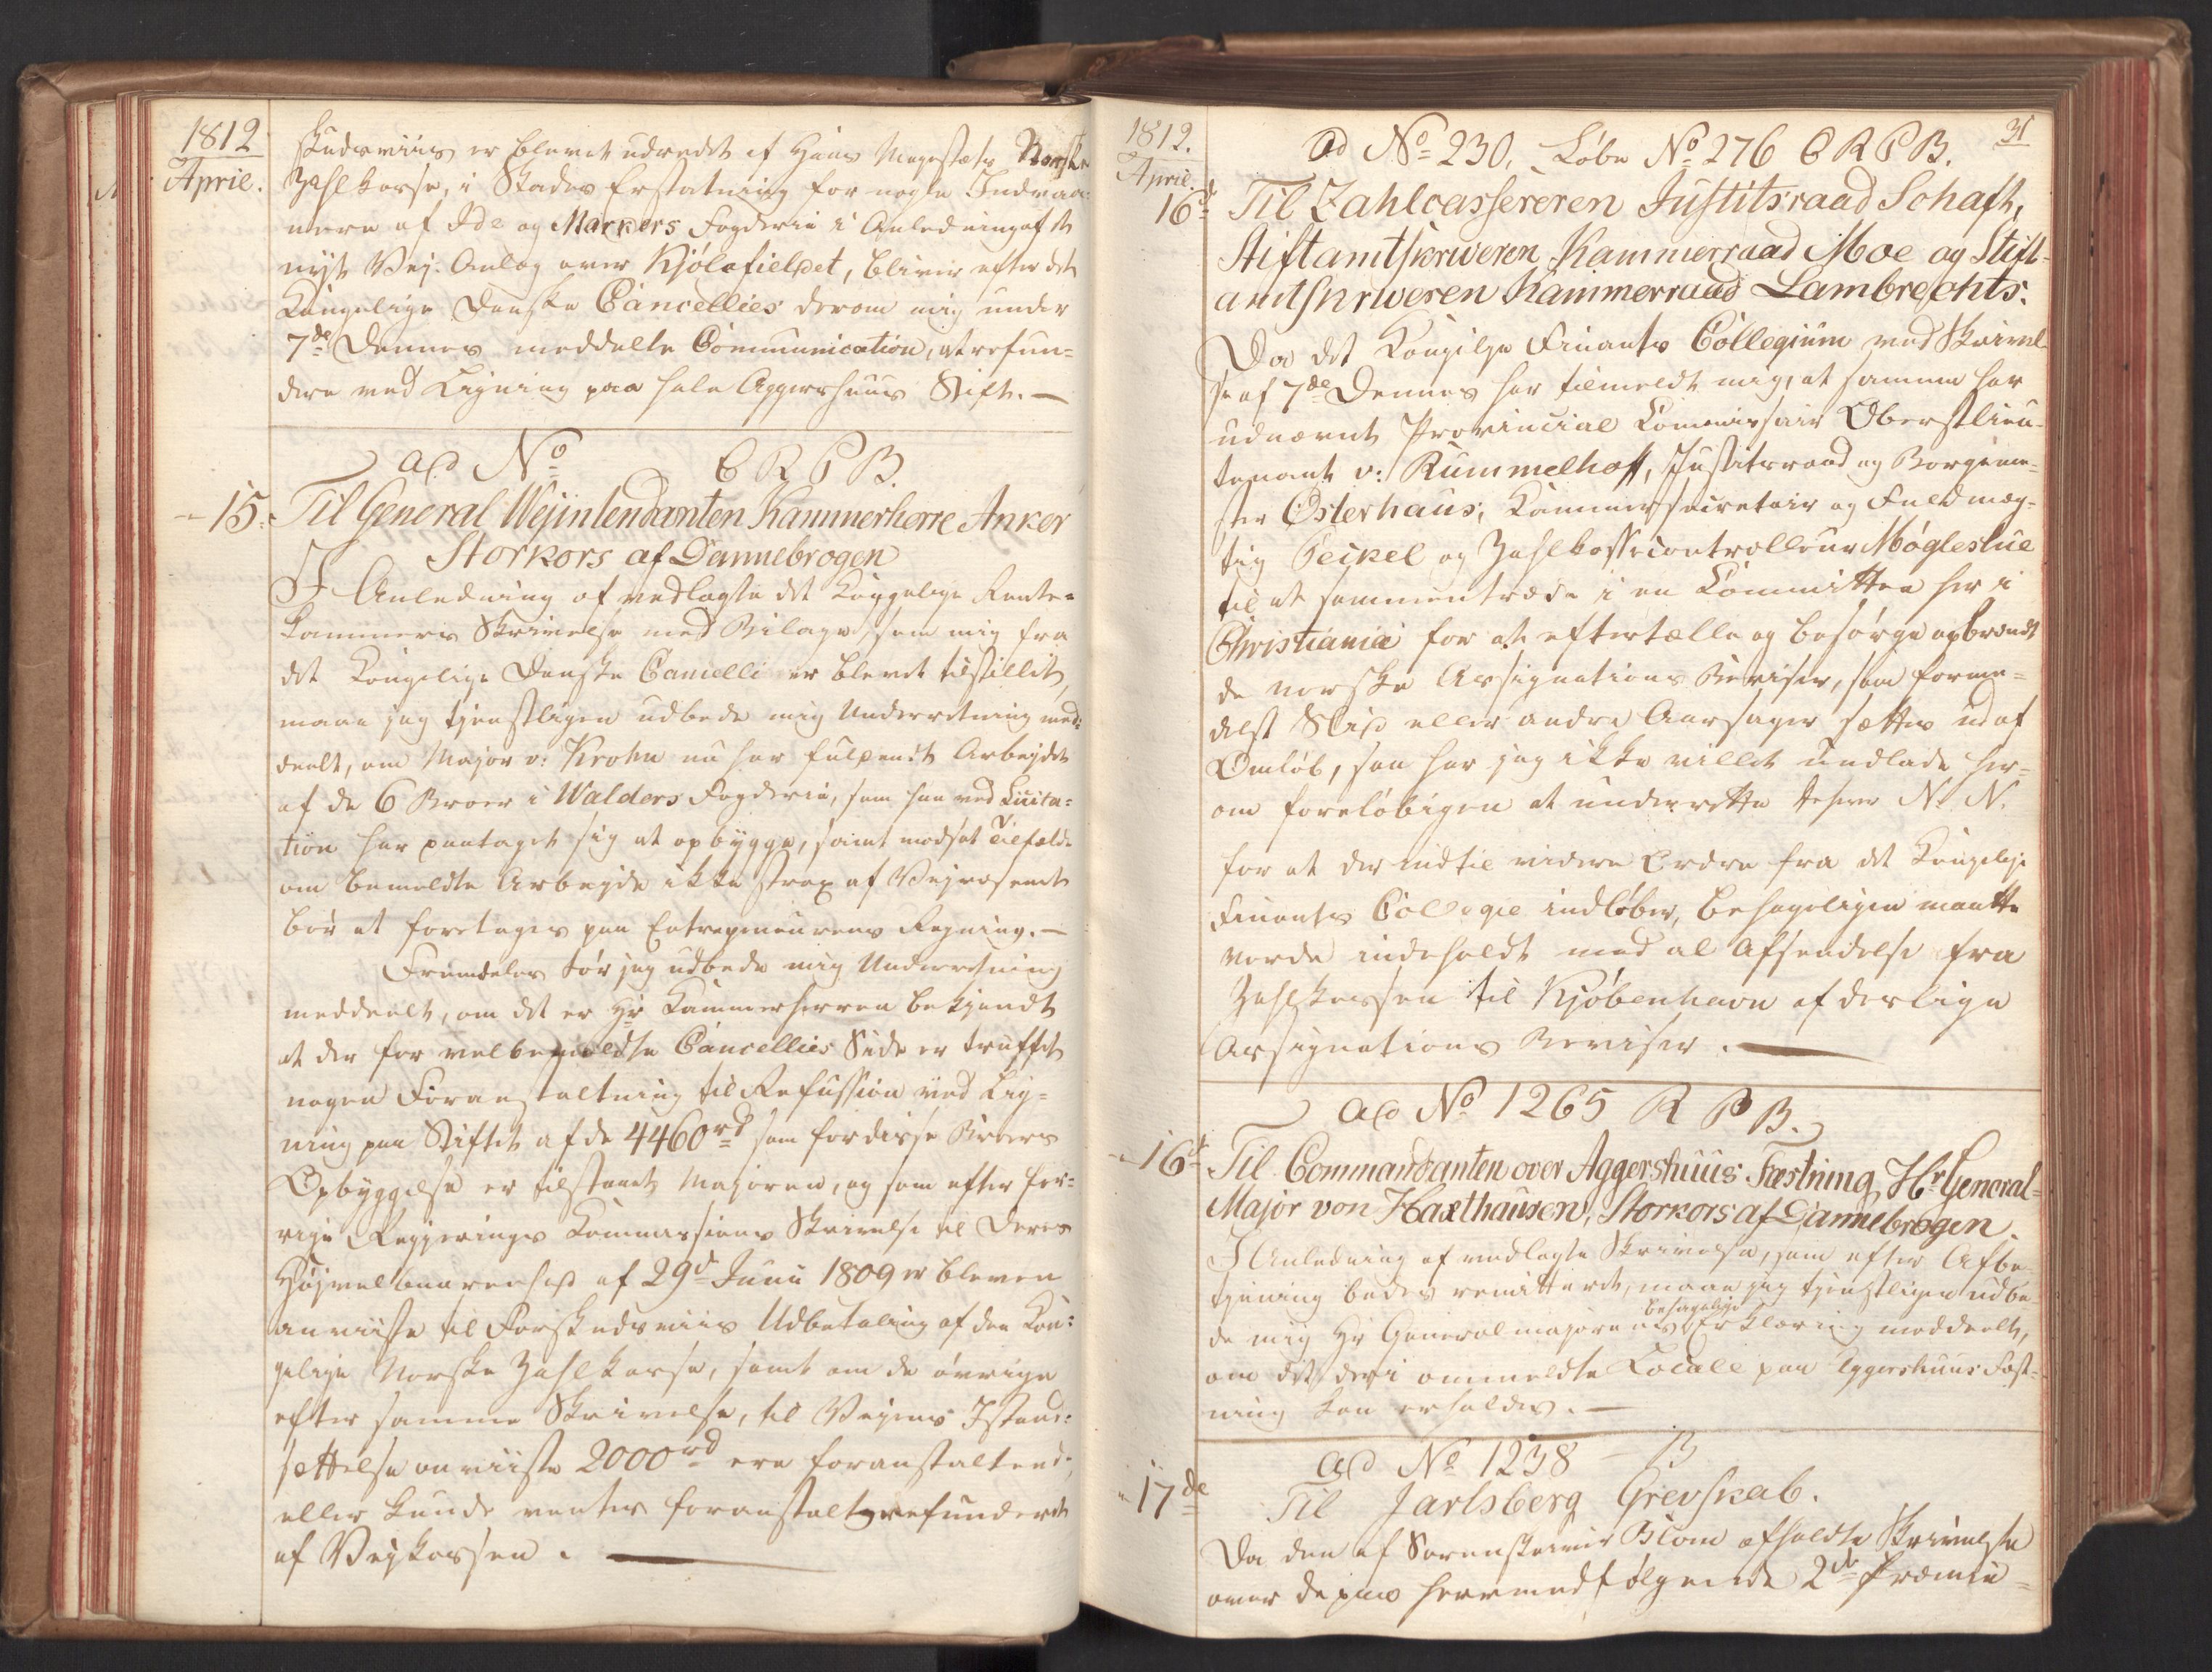 1812
April.
skudsviis er blevet udredet af Hans Majestæts Norske
Zahlkasse, i Skades Erstatning for nogle Indvaa-
nere af Ide og Markers Fogderie i Anledning af et
nyt Vej-Anlæg over Kjølefieldet, bliver efter det
Kongelige Danske Cancellies derom mig under
7de Dennes meddelte Communication, at refun-
dere ved Ligning paa hele Aggershuus Stift. —
ad No C R P B.
- 15. Til General Wejintendanten Kammerherre Anker
Storkors af Dannebrogen
I Anledning af vedlagte det Kongelige Rente-
kammers Skrivelse med Bilage, som mig fra
det Kongelige Danske Cancelli er blevet tilstillet,
maae jeg tjenstligen udbede mig Underretning med-
deelt, om Major v: Krohn nu har fulendt Arbejdet
af de 6 Broer i Walders Fogderie, som han ved Licita-
tion har paataget sig at opbygge, samt modsat Tilfælde
om bemeldte Arbejde ikke strax af Vejvæsenet
bør at foretages paa Entrepreneurens Regning. —
Fremdeles tør jeg udbede mig Underretning
meddeelt, om det er Hr Kammerherren bekjendt
at der for velbemeldte Cancellies Side er truffet
nogen Foranstaltning til Refussion ved Lig-
ning paa Stiftet af de 4460 rd som for disse Broers
Opbyggelse er tilstaaet Majoren, og som efter for-
rige Regjerings Commissions Skrivelse til Deres
Højvelbaarenhed af 29d Junii 1809 er bleven
anviiste til Forskudsviis Udbetaling af den Kon-
gelige Norske Zahlkasse, samt om de øvrige
efter samme Skrivelse, til Vejens Istand-
sættelse anviiste 2000 rd ere foranstaltend,
eller kunde ventes foranstaltet refunderet
af Vejkassen. —
31
1812.
April.
ad No 230, Løbe No 276 C R P B.
16d Til Zahlcassereren Justitsraad Schaft,
Stiftamtskriveren Kammerraad Moe og Stift-
amtskriveren Kammerraad Lambrechts.
Da det Kongelige Finants Collegium ved Skrivel-
se af 7de Dennes har tilmeldt mig, at samme har
udnævnt Provincial Commissair Oberstlieu-
tenant v: Rummelhoff, Justitsraad og Borgeme-
ster Osterhaus, Kammersecretair og Fuldmæg-
tig Peckel og Zahlkassecontrolleur Møglestue
til at sammentræde i en Committee her i
Christiania for at eftertælle og besørge opbrændt
de norske Assignations Beviser, som forme-
delst Slid eller andre Aarsager sættes ud af
Omløb, saa har jeg ikke villet undlade her-
om foreløbigen at underrette deherr N. N.
for at der indtil videre Ordre fra det Kongelige
Finants Collegie indløber, behageligen maatte
vorde indeholdt med al Afsendelse fra
Zahlkassen til Kjøbenhavn af deslige
Assignations Beviser. —
ad No 1265 R P B.
- 16d Til Commandanten over Aggershuus Fæstning Hr General-
Major von Haxthausen, Storkors af Dannebrogen.
I Anledning af vedlagte Skrivelse, som efter Afbe-
tjening bedes remitteret, maae jeg tjenstligen udbe-
de mig Hr Generalmajorens behagelige Erklæring meddeelt,
om det deri ommeldte Locale paa Aggershuus Fæst-
ning kan erholdes. —
ad No 1238 - B
" 17de Til Jarlsberg Grevskab.
Da den af Sorenskriver Blom afholdte Skrivelse
over de paa hermedfølgende 2de Præmie-